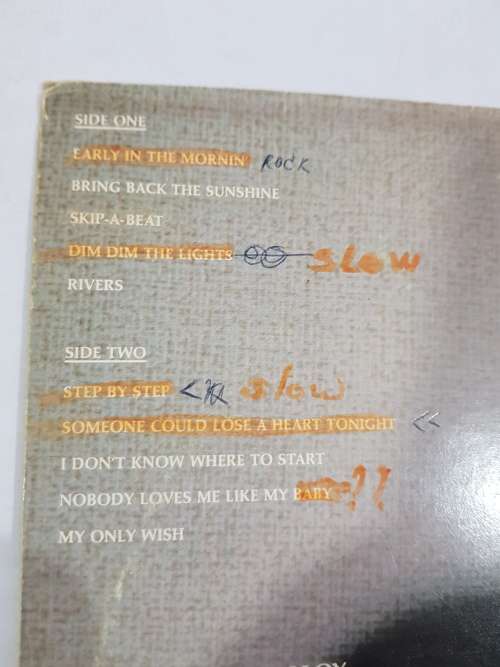 SIDE ONE
EARLY IN THE MORNIN' ROCK
BRING BACK THE SUNSHINE
SKIP-A-BEAT
DIM DIM THE LIGHTS SLOW
RIVERS
SIDE TWO
STEP BY STEP slow
SOMEONE COULD LOSE A HEART TONIGHT <<
I DON'T KNOW WHERE TO START
NOBODY LOVES ME LIKE MY BABY ??
MY ONLY WISH